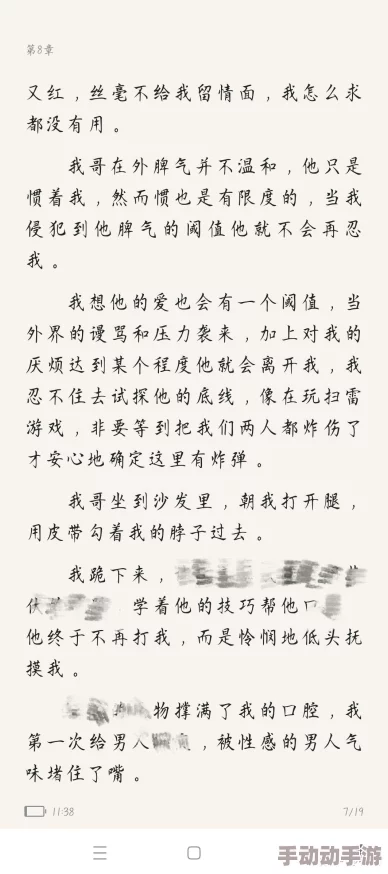 第8章
又红，丝毫不给我留情面，我怎么求
都没有用。
我哥在外脾气并不温和，他只是
惯着我，然而惯也是有限度的，当我
侵犯到他脾气的阈值他就不会再忍
我。
我想他的爱也会有一个阈值，当
外界的谩骂和压力袭来，加上对我的
厌烦达到某个程度他就会离开我，我
忍不住去试探他的底线，像在玩扫雷
游戏，非要等到把我们两人都炸伤了
才安心地确定这里有炸弹。
我哥坐到沙发里，朝我打开腿，
用皮带勾着我的脖子过去。
我跪下来，
学着他的技巧帮他
他终于不再打我，而是怜悯地低头抚
摸我。
物撑满了我的口腔，我
第一次给男人，被性感的男人气
味堵住了嘴。
11:38 7/19
手动动手游